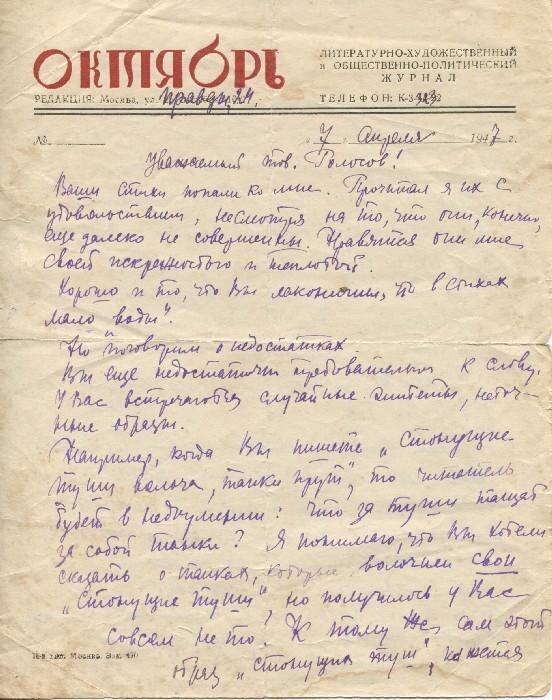 ОКТЯБРЬ
ЛИТЕРАТУРНО-ХУДОЖЕСТВЕННЫЙ
и ОБЩЕСТВЕННО-ПОЛИТИЧЕСКИЙ
ЖУРНАЛ
РЕДАКЦИЯ: Москва, ул. Правды, 24.
ТЕЛЕФОН: К-3-
№ "7" апреля 1947 г.
Уважаемый тов. Голосов!
Ваши стихи попали ко мне. Прочитал я их с
удовольствием, несмотря на то, что они, конечно,
еще далеко не совершенны. Нравятся они мне
своей искренностью и теплотой.
Хорошо и то, что Вы лаконичны, что в стихах
мало "воды".
Но поговорим о недостатках.
Вы еще недостаточно требовательны к слову.
У Вас встречаются случайные эпитеты, неточ-
ные образы.
Например, когда Вы пишете "Стонущие
туши волоча, танки прут", то читатель
будет в недоумении: что за туши тащат
за собой танки? Я понимаю, что Вы хотели
сказать о танках, которые волочили свои
"стонущие туши", но получилось у Вас
совсем не то. К тому же сам этот
образ "стонущих туш", кажется
Москва. Зак.